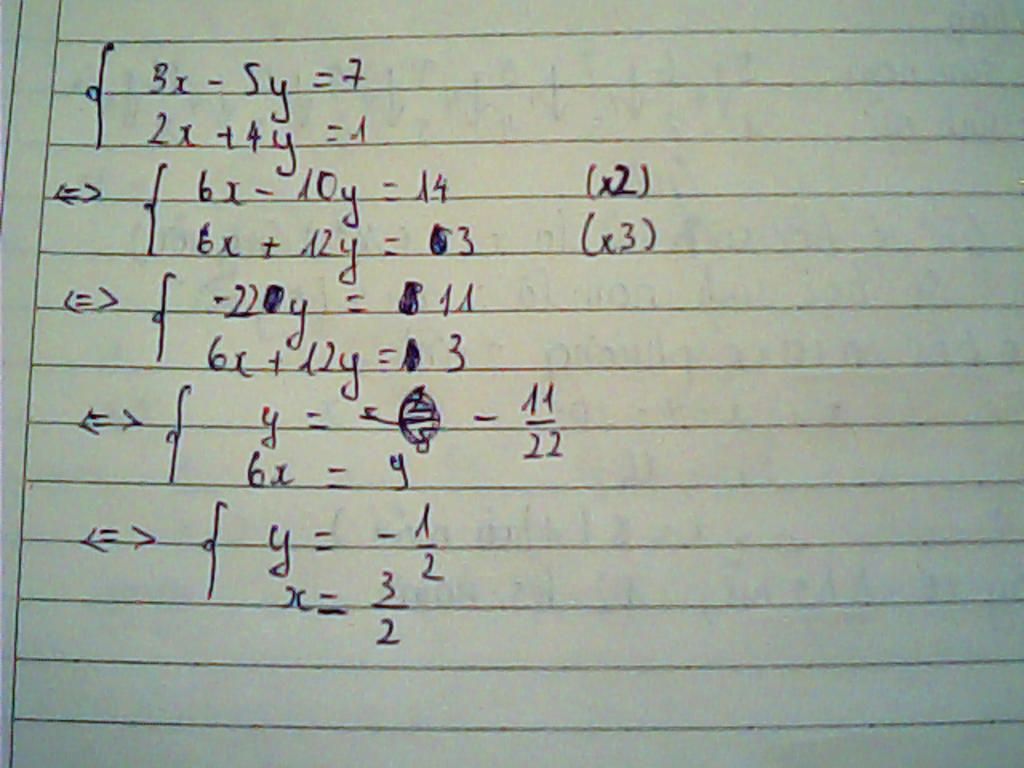 { 3x - 5y = 7
2x + 4y = 1
<=> { 6x - 10y = 14 (x2)
6x + 12y = 3 (x3)
<=> { -22y = 11
6x + 12y = 3
<=> { y = - 11/22
6x = 9
<=> { y = - 1/2
x = 3/2